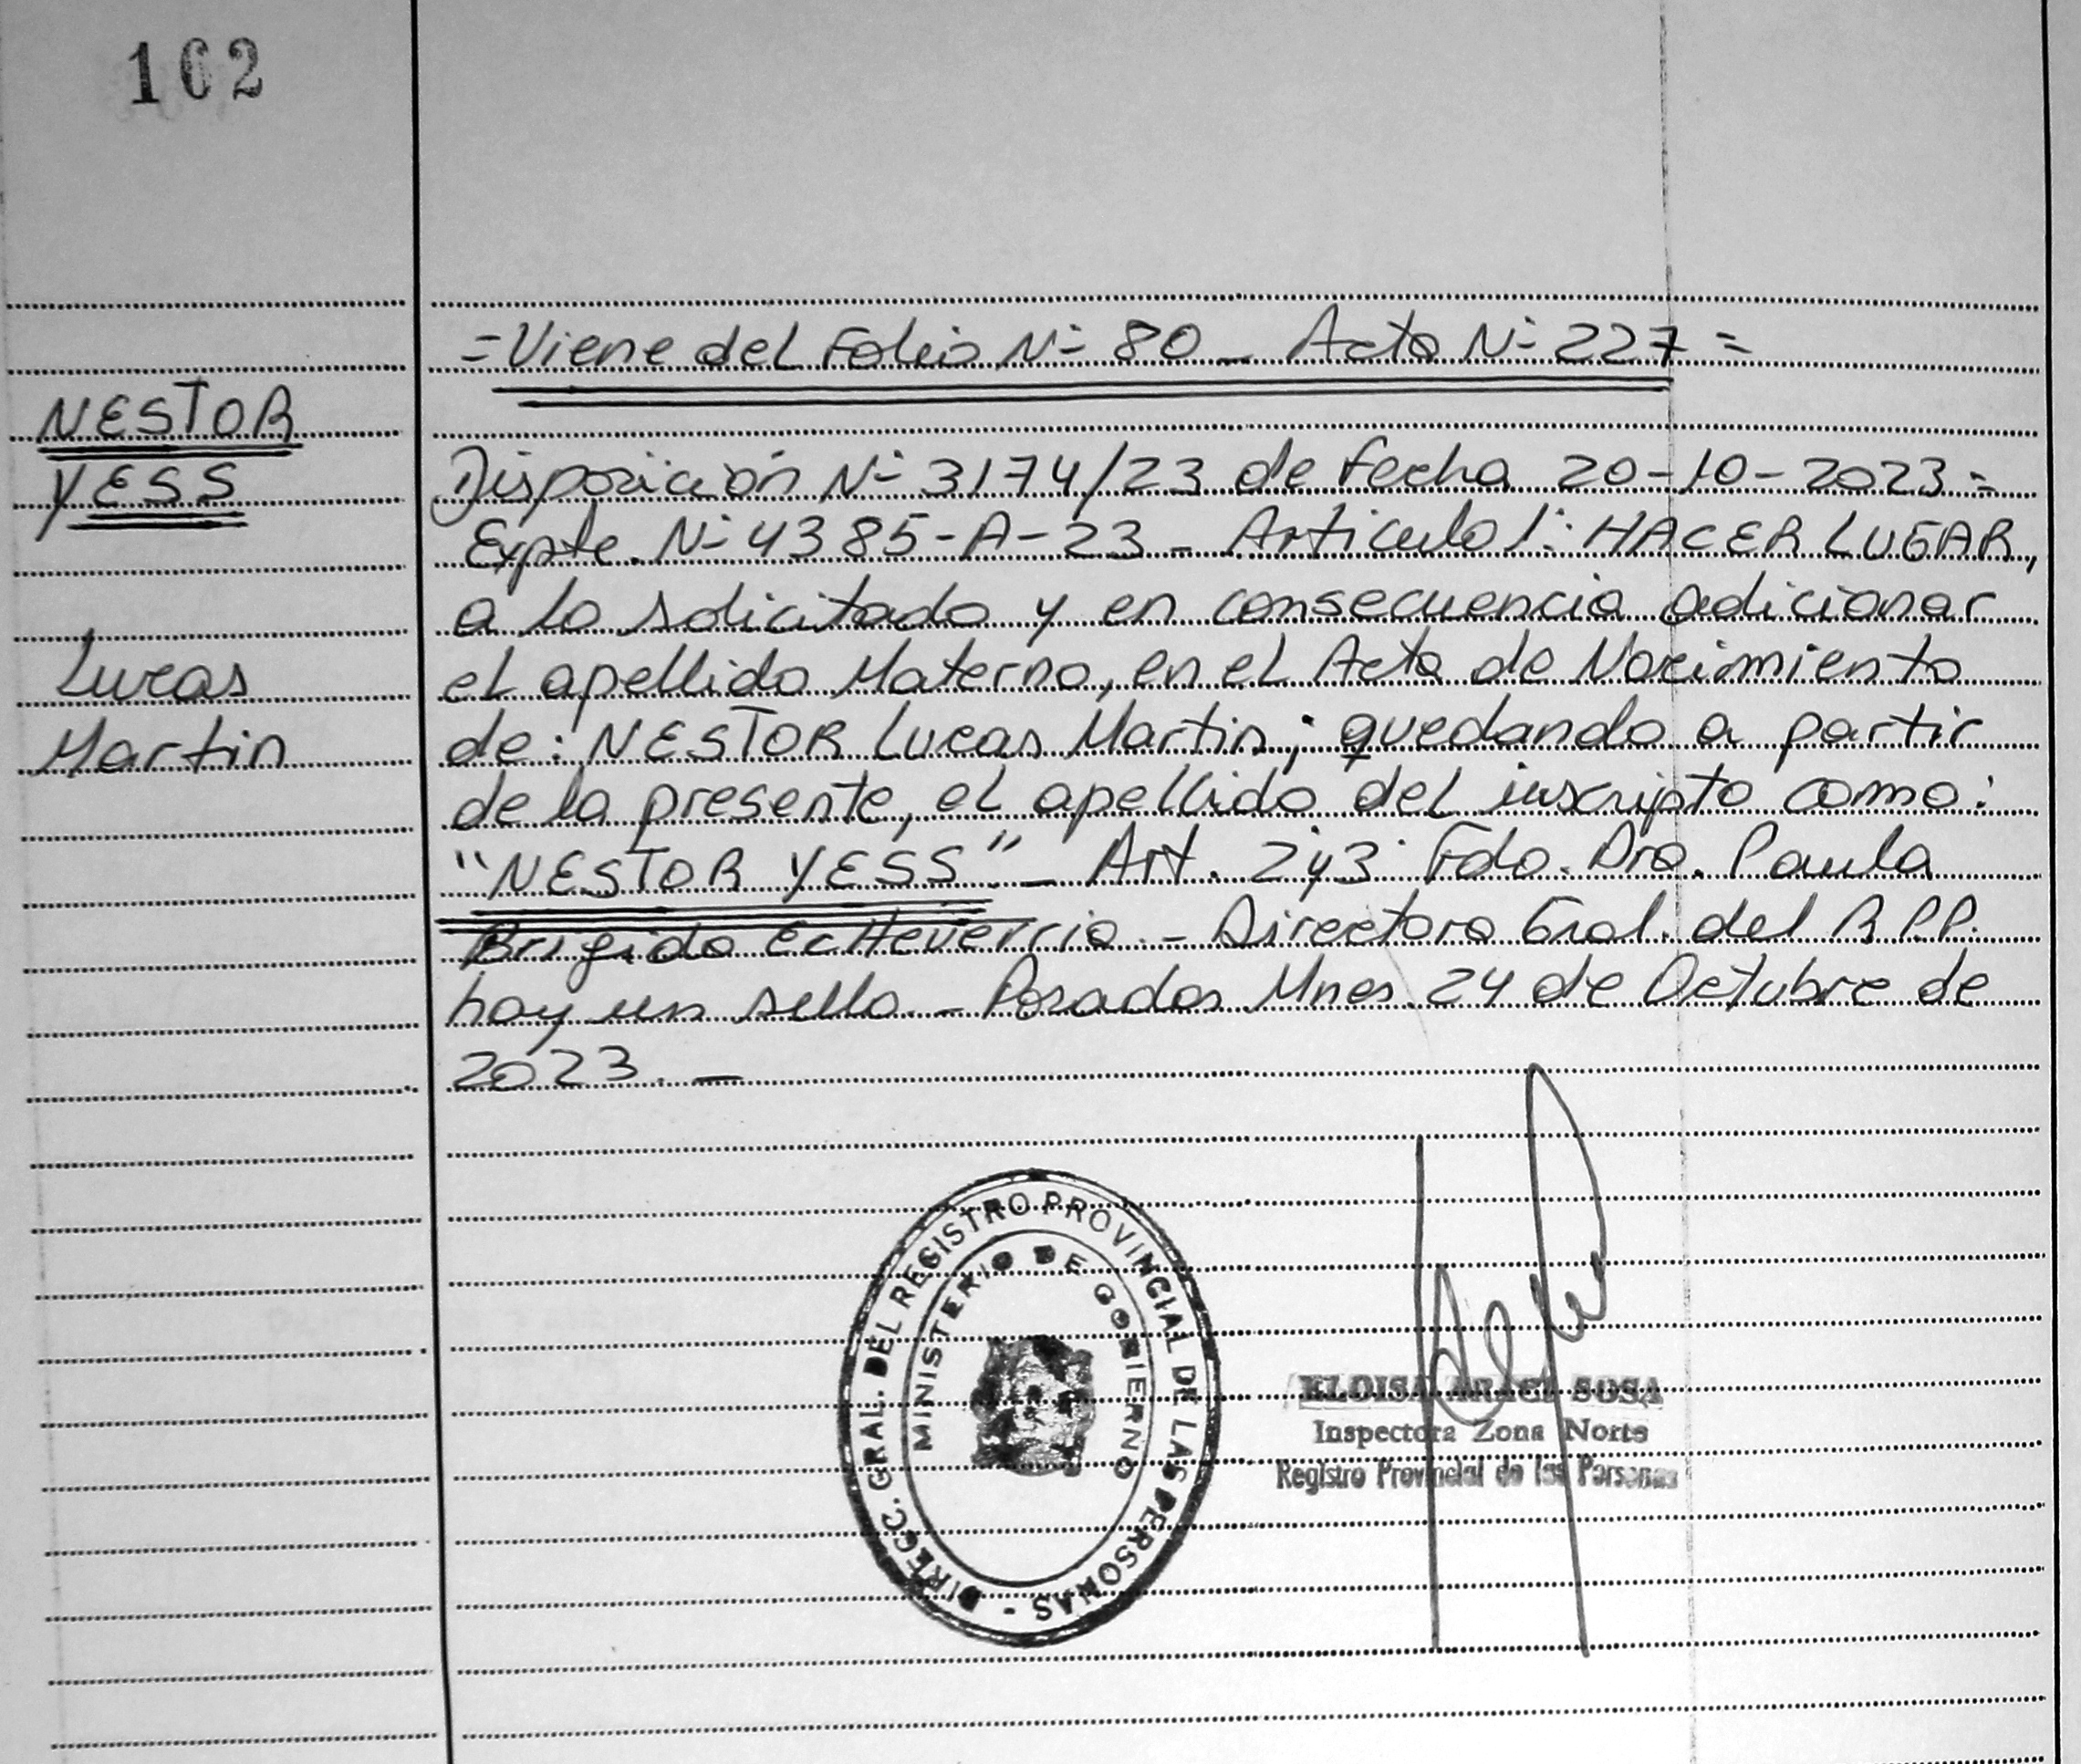 162
NESTOR
YESS
Lucas
Martin
=Viene del Folio Nº 80 - Acta Nº 227=
Disposición Nº 3174/23 de Fecha 20-10-2023=
Expte. Nº 4385-A-23 - Articulo 1º: HACER LUGAR,
a lo solicitado y en consecuencia adicionar
el apellido Materno, en el Acta de Nacimiento
de: NESTOR Lucas Martin; quedando a partir
de la presente, el apellido del inscripto como:
"NESTOR YESS" - Art. 2y3º Fdo. Dra. Paula
Brigida Echeverria - Directora Gral. del R.P.P.
hay un sello - Posadas Mnes. 24 de Octubre de
2023. -
DIRECC. GRAL. DEL REGISTRO PROVINCIAL DE LAS PERSONAS -
MINISTERIO DE GOBIERNO
ELOISA SOSA
Inspectora Zona Norte
Registro Provincial de las Personas